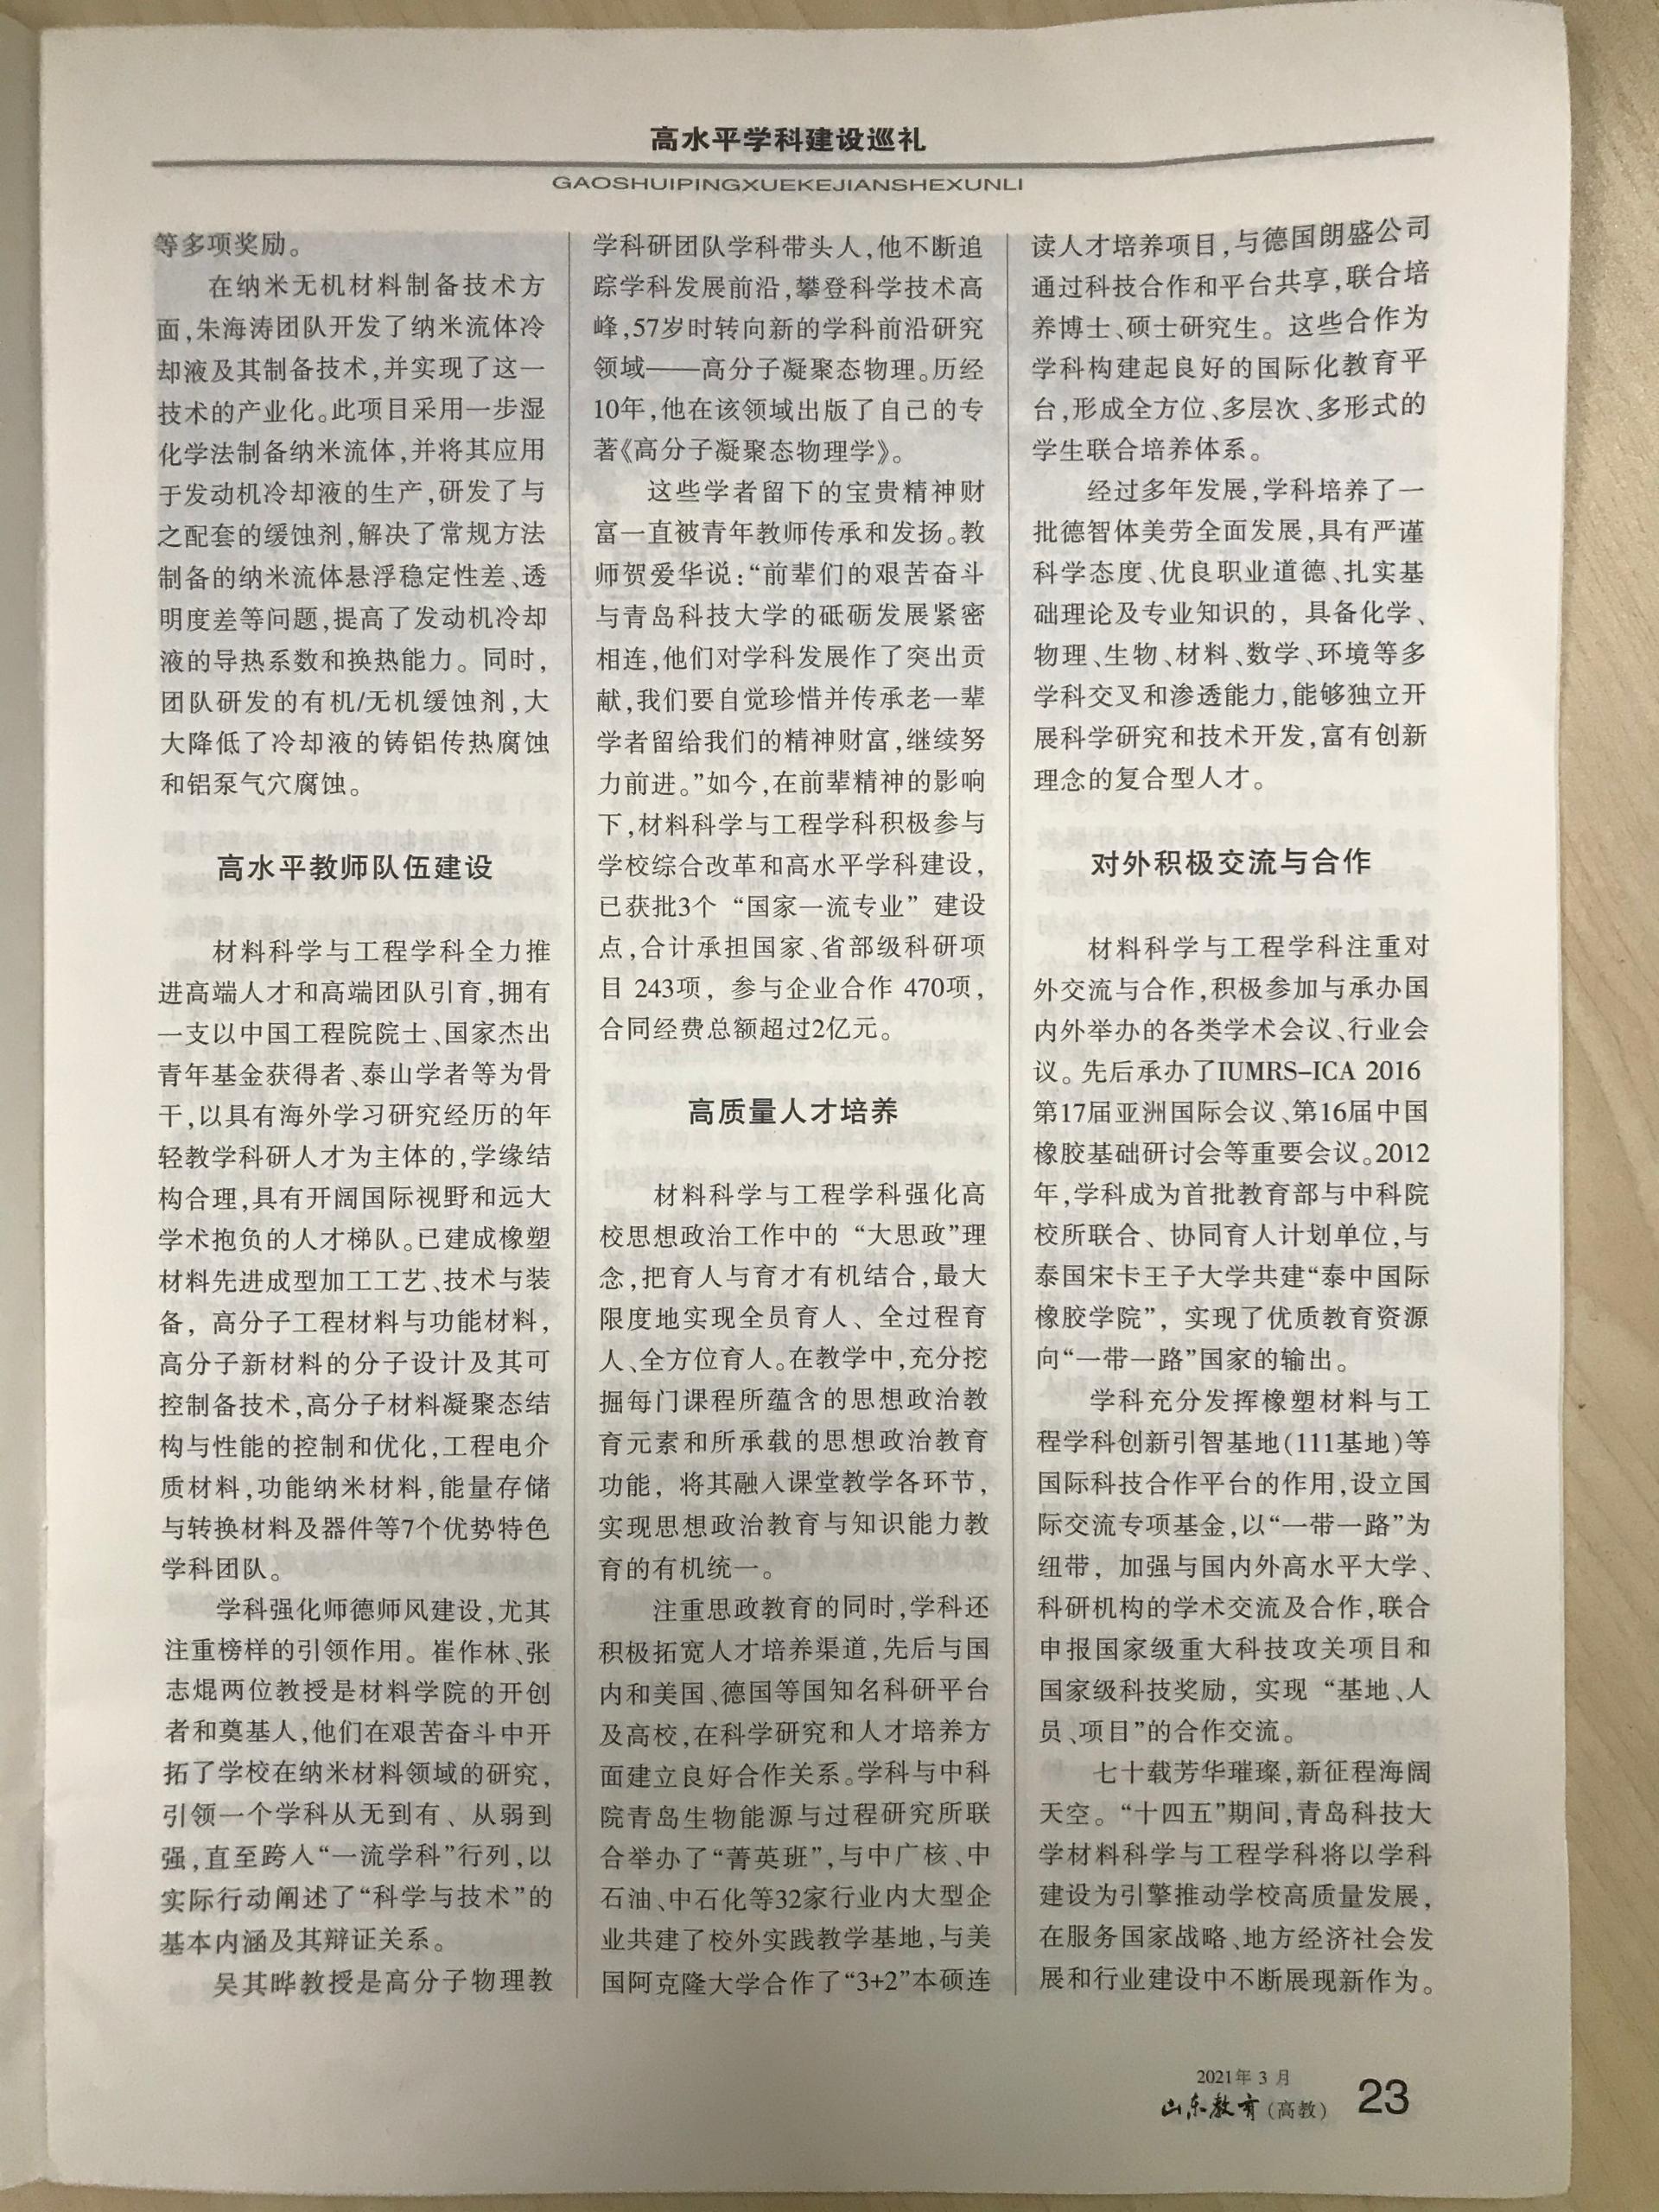 高水平学科建设巡礼
GAOSHUIPINGXUEKEJIANSHEXUNLI
等多项奖励。
在纳米无机材料制备技术方
面,朱海涛团队开发了纳米流体冷
却液及其制备技术,并实现了这一
技术的产业化。此项目采用一步湿
化学法制备纳米流体,并将其应用
于发动机冷却液的生产,研发了与
之配套的缓蚀剂,解决了常规方法
制备的纳米流体悬浮稳定性差、透
明度差等问题,提高了发动机冷却
液的导热系数和换热能力。同时,
团队研发的有机/无机缓蚀剂,大
大降低了冷却液的铸铝传热腐蚀
和铝泵气穴腐蚀。
高水平教师队伍建设
材料科学与工程学科全力推
进高端人才和高端团队引育,拥有
一支以中国工程院院士、国家杰出
青年基金获得者、泰山学者等为骨
干,以具有海外学习研究经历的年
轻教学科研人才为主体的,学缘结
构合理,具有开阔国际视野和远大
学术抱负的人才梯队。已建成橡塑
材料先进成型加工工艺、技术与装
备，高分子工程材料与功能材料,
高分子新材料的分子设计及其可
控制备技术,高分子材料凝聚态结
构与性能的控制和优化,工程电介
质材料,功能纳米材料,能量存储
与转换材料及器件等7个优势特色
学科团队。
学科强化师德师风建设,尤其
注重榜样的引领作用。崔作林、张
志焜两位教授是材料学院的开创
者和奠基人,他们在艰苦奋斗中开
拓了学校在纳米材料领域的研究,
引领一个学科从无到有、从弱到
强,直至跨入“一流学科”行列,以
实际行动阐述了“科学与技术”的
基本内涵及其辩证关系。
吴其晔教授是高分子物理教
学科研团队学科带头人,他不断追
踪学科发展前沿,攀登科学技术高
峰,57岁时转向新的学科前沿研究
领域——高分子凝聚态物理。历经
10年,他在该领域出版了自己的专
著《高分子凝聚态物理学》。
这些学者留下的宝贵精神财
富一直被青年教师传承和发扬。教
师贺爱华说:“前辈们的艰苦奋斗
与青岛科技大学的砥砺发展紧密
相连,他们对学科发展作了突出贡
献,我们要自觉珍惜并传承老一辈
学者留给我们的精神财富,继续努
力前进。”如今,在前辈精神的影响
下,材料科学与工程学科积极参与
学校综合改革和高水平学科建设,
已获批3个“国家一流专业”建设
点,合计承担国家、省部级科研项
目 243项，参与企业合作 470项,
合同经费总额超过2亿元。
高质量人才培养
材料科学与工程学科强化高
校思想政治工作中的“大思政”理
念,把育人与育才有机结合,最大
限度地实现全员育人、全过程育
人、全方位育人。在教学中,充分挖
掘每门课程所蕴含的思想政治教
育元素和所承载的思想政治教育
功能，将其融入课堂教学各环节,
实现思想政治教育与知识能力教
育的有机统一。
注重思政教育的同时,学科还
积极拓宽人才培养渠道,先后与国
内和美国、德国等国知名科研平台
及高校,在科学研究和人才培养方
面建立良好合作关系。学科与中科
院青岛生物能源与过程研究所联
合举办了“菁英班”,与中广核、中
石油、中石化等32家行业内大型企
业共建了校外实践教学基地,与美
国阿克隆大学合作了“3+2”本硕连
读人才培养项目,与德国朗盛公司
通过科技合作和平台共享,联合培
养博士、硕士研究生。这些合作为
学科构建起良好的国际化教育平
台,形成全方位、多层次、多形式的
学生联合培养体系。
经过多年发展,学科培养了一
批德智体美劳全面发展,具有严谨
科学态度、优良职业道德、扎实基
础理论及专业知识的，具备化学、
物理、生物、材料、数学、环境等多
学科交叉和渗透能力,能够独立开
展科学研究和技术开发,富有创新
理念的复合型人才。
对外积极交流与合作
材料科学与工程学科注重对
外交流与合作,积极参加与承办国
内外举办的各类学术会议、行业会
议。先后承办了IUMRS–ICA 2016
第17届亚洲国际会议、第16届中国
橡胶基础研讨会等重要会议。2012
年,学科成为首批教育部与中科院
校所联合、协同育人计划单位,与
泰国宋卡王子大学共建“泰中国际
橡胶学院”，实现了优质教育资源
向“一带一路”国家的输出。
学科充分发挥橡塑材料与工
程学科创新引智基地(111基地)等
国际科技合作平台的作用,设立国
际交流专项基金,以“一带一路”为
纽带，加强与国内外高水平大学、
科研机构的学术交流及合作,联合
申报国家级重大科技攻关项目和
国家级科技奖励，实现“基地、人
员、项目”的合作交流。
七十载芳华璀璨,新征程海阔
天空。“十四五”期间,青岛科技大
学材料科学与工程学科将以学科
建设为引擎推动学校高质量发展,
在服务国家战略、地方经济社会发
展和行业建设中不断展现新作为。
2021年 3 月
山东教育(高教) 23